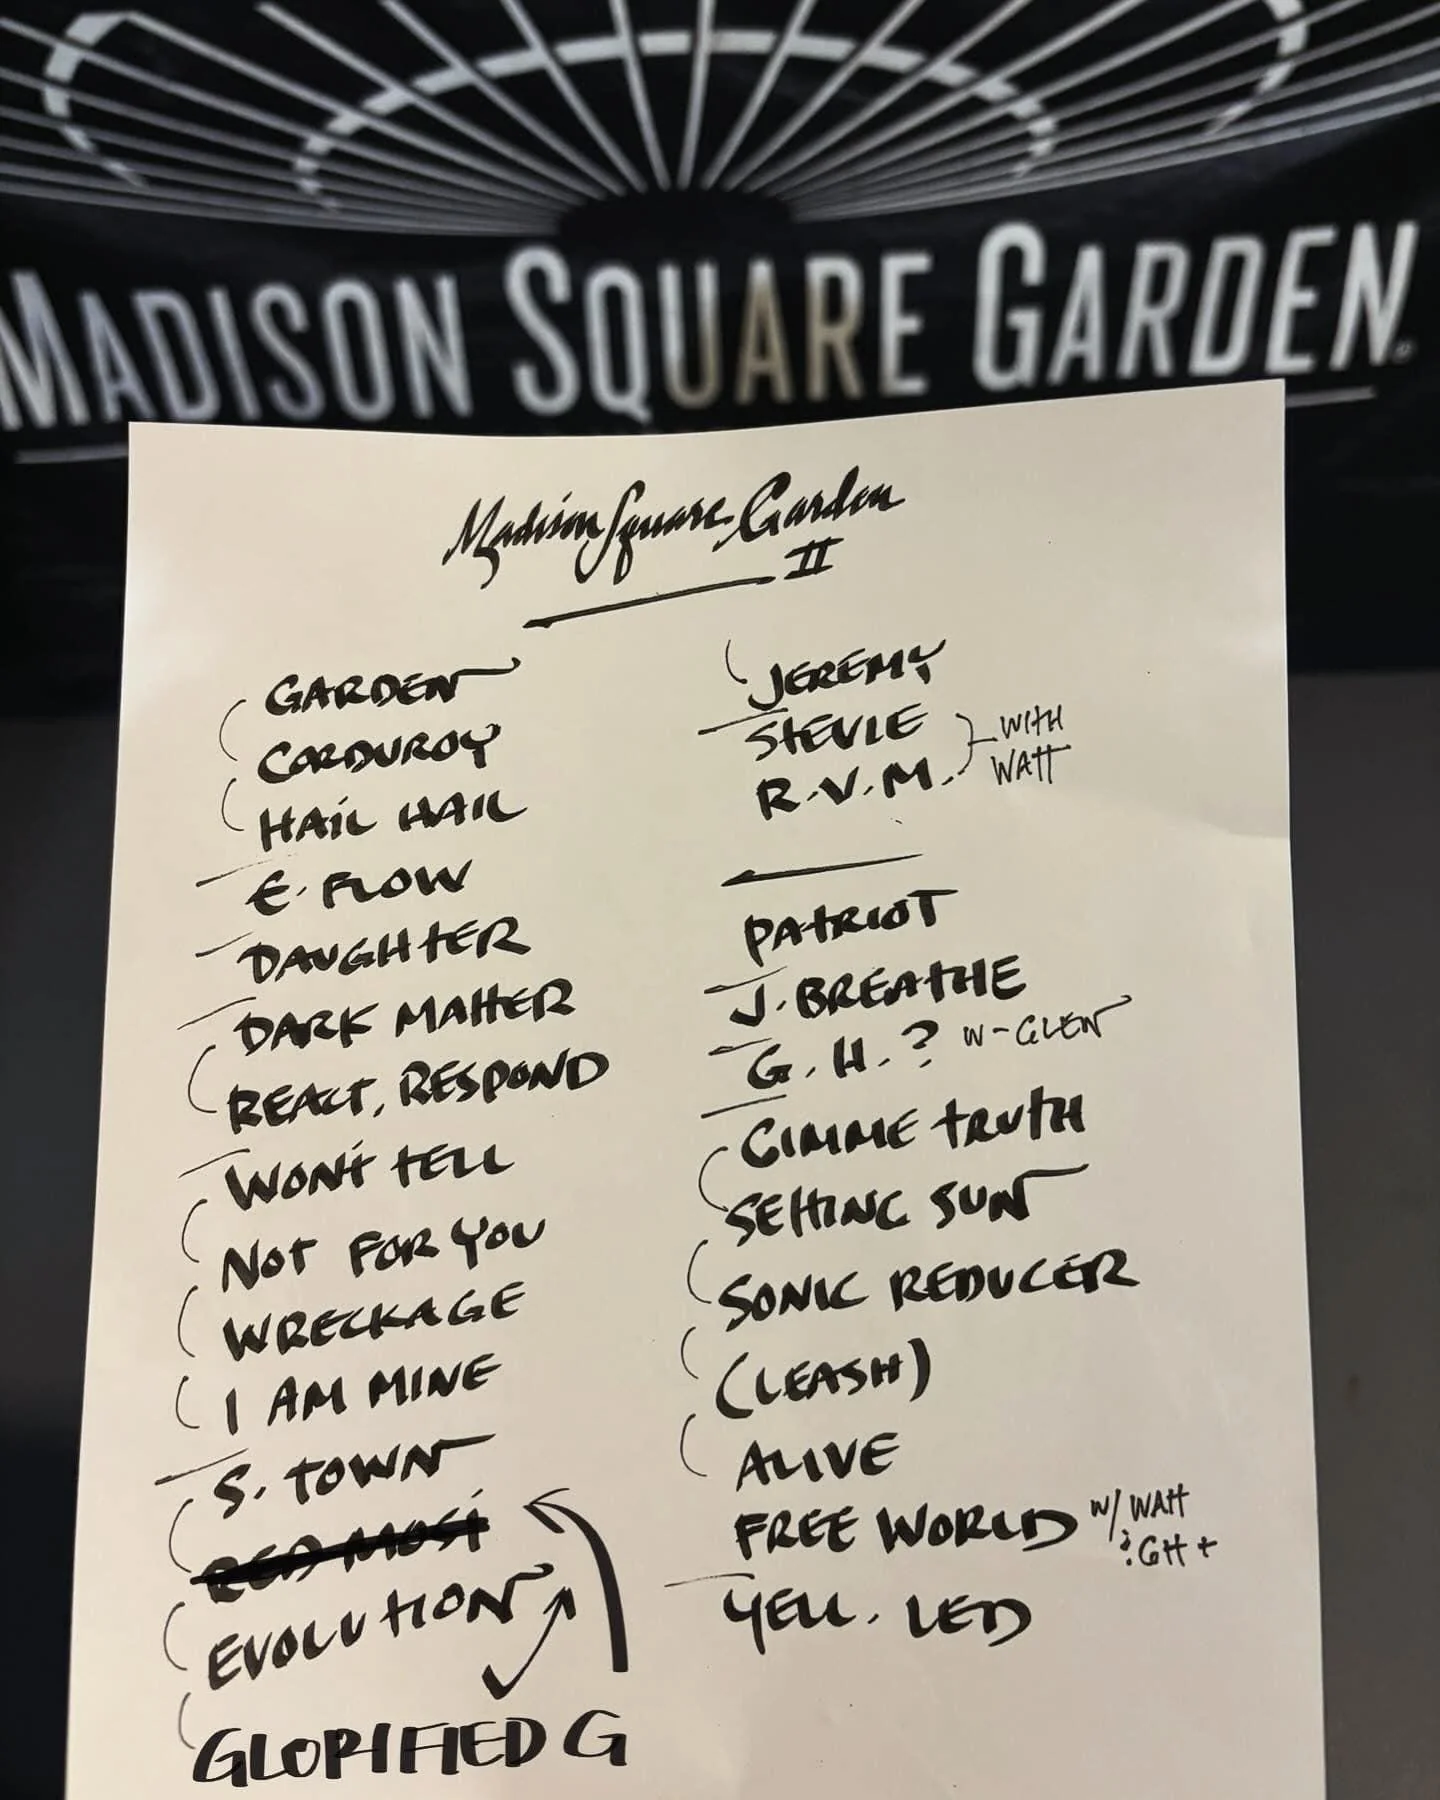 MADISON SQUARE GARDEN
Madison Square Garden
II
GARDEN
CORDUROY
HAIL HAIL
E. FLOW
DAUGHTER
DARK MATTER
REACT, RESPOND
WON'T TELL
NOT FOR YOU
WRECKAGE
I AM MINE
S. TOWN
RED MOSI
EVOLUTION
GLORIFIED G
JEREMY
STEVIE
R.V.M.
WITH
WATT
PATRIOT
J. BREATHE
G. H. ? W-GLEN
GIMME TRUTH
SETTING SUN
SONIC REDUCER
(LEASH)
ALIVE
FREE WORLD W/ WATT
: GH +
YELL. LED